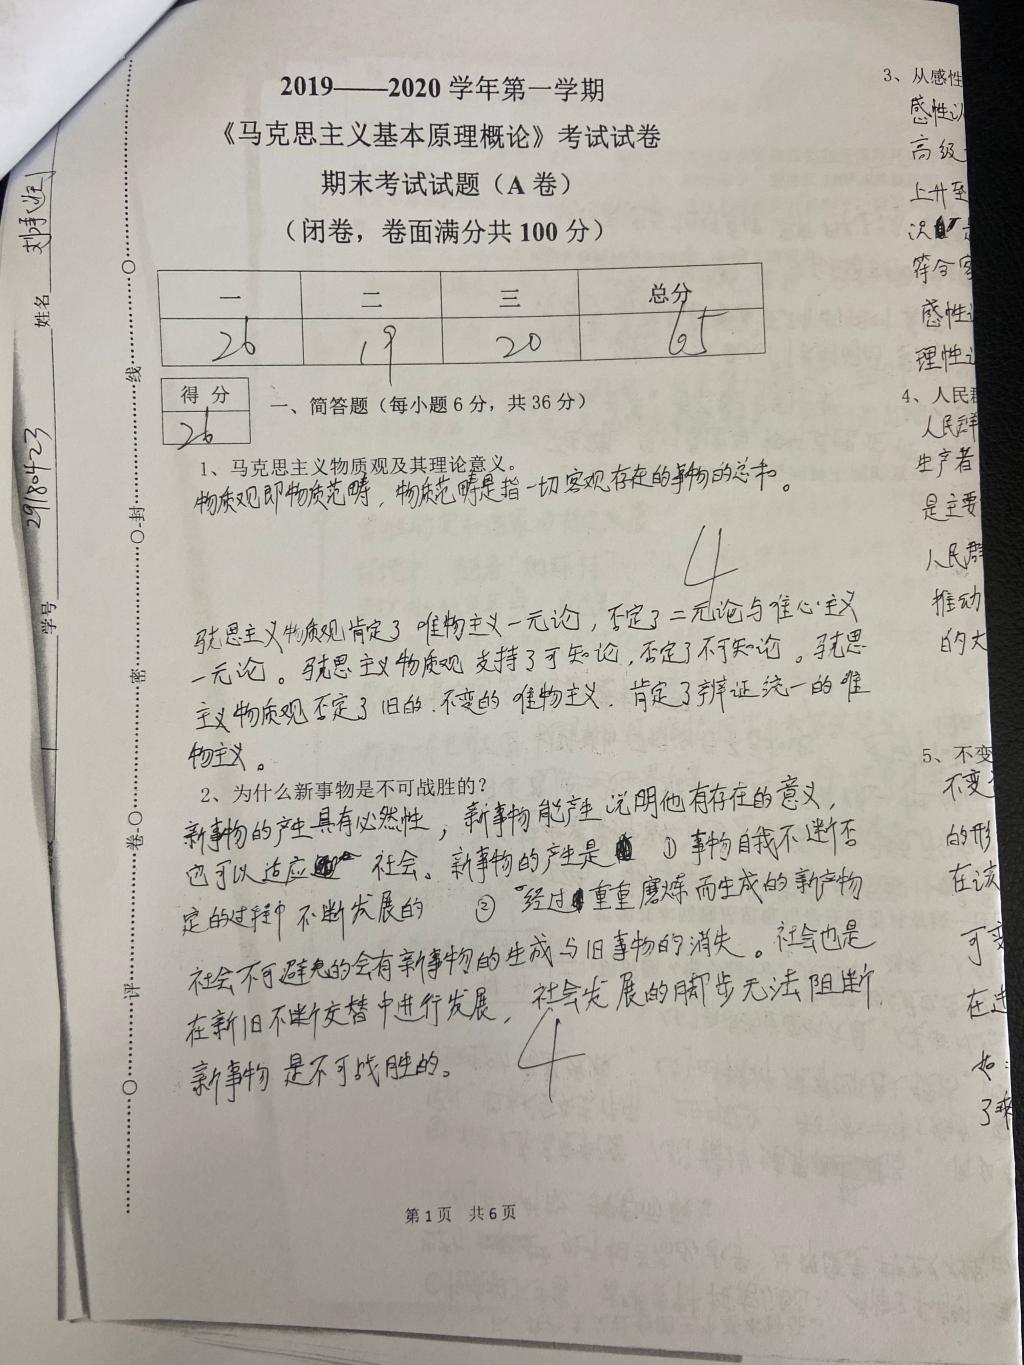 2019——2020 学年第一学期
《马克思主义基本原理概论》考试试卷
期末考试试题（A 卷）
（闭卷，卷面满分共 100 分）
一 二 三 总分
26 19 20 65
得 分
26
一、简答题（每小题 6 分，共 36 分）
1、马克思主义物质观及其理论意义。
物质观即物质范畴，物质范畴是指一切客观存在的事物的总和。
4
马克思主义物质观肯定了唯物主义一元论，否定了二元论与唯心主义
一元论。马克思主义物质观支持了可知论，否定了不可知论。马克思
主义物质观否定了旧的.不变的唯物主义.肯定了辨证统一的唯
物主义。
2、为什么新事物是不可战胜的？
新事物的产生具有必然性，新事物能产生说明他有存在的意义，
也可以适应 社会。新事物的产生是 ① 事物自我不断否
定的过程中不断发展的 ② 经过重重磨炼而生成的新产物
社会不可避免的会有新事物的生成与旧事物的消失。社会也是
在新旧不断交替中进行发展，社会发展的脚步无法阻断.
新事物是不可战胜的。
4
第 1 页 共 6 页
学号 29180423 姓名
评 卷 密 封 线
3、从感性
感性认
高级
上升至
符合客
感性认
理性认
4、人民群
人民群
生产者
是主要
人民群
推动
的大
5、不变
不变
的形
在该
可变
在进
如：
了